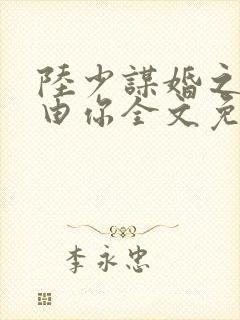 陸少謀婚之
由你全文免
李永忠